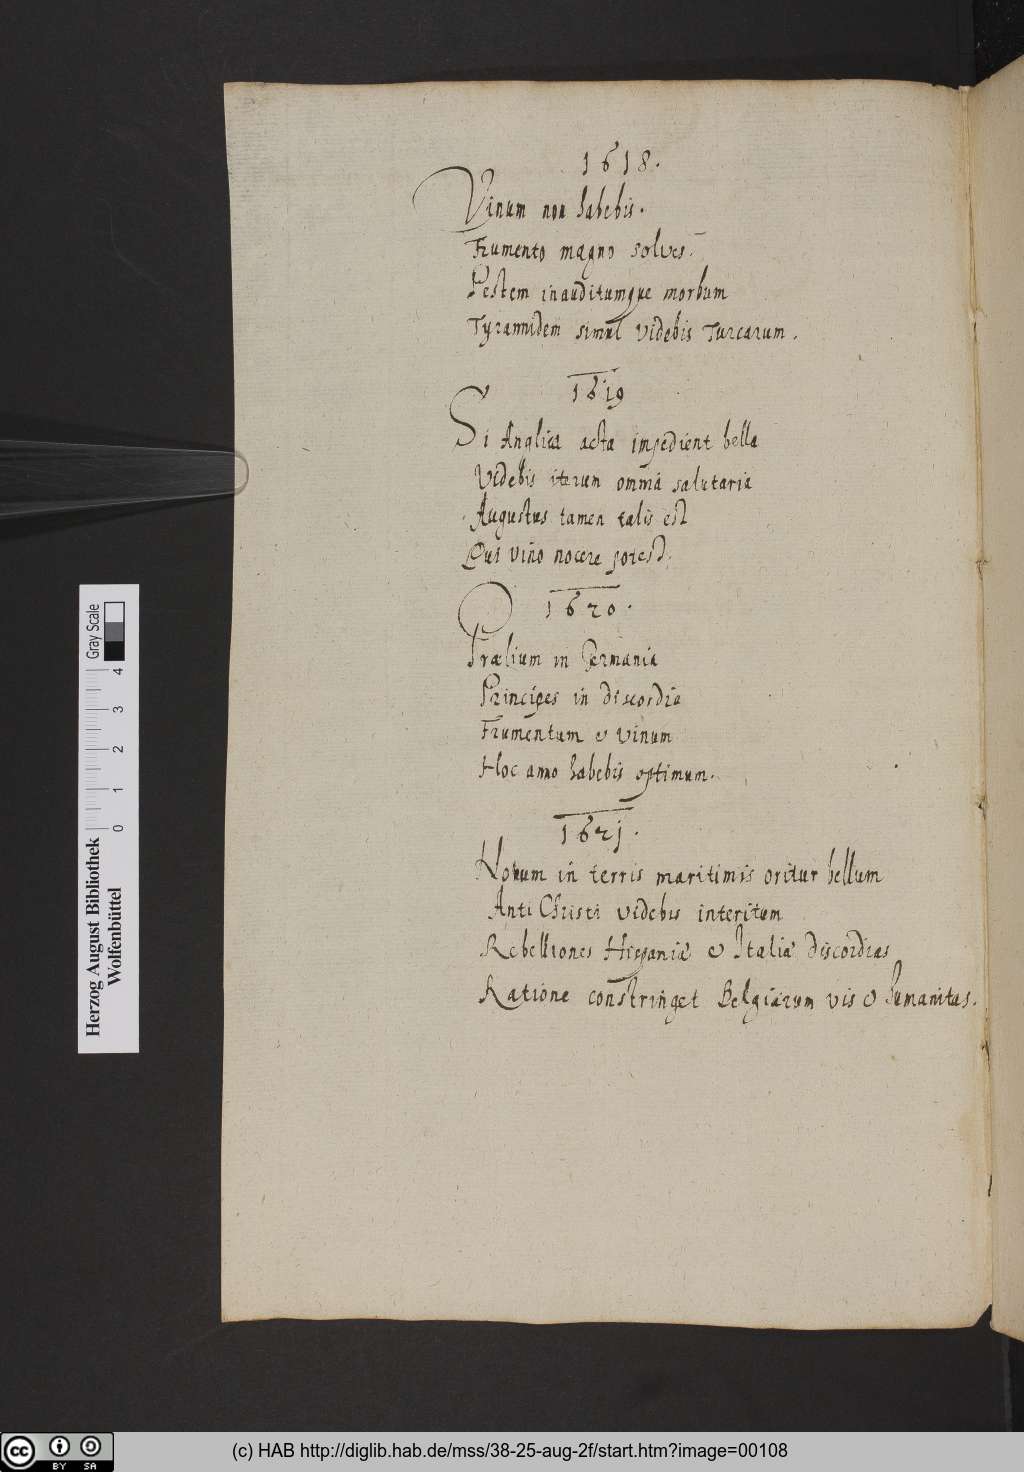 1618.
Vinum non habebis.
Frumento magno solves.
Pestem inauditumque morbum
Tyrannidem simul videbis Turcarum.
1619
Si Anglica acta impedient bella
Videbis iterum omnia salutaria
Augustus tamen talis est
Qui vino nocere potest.
1620.
Prælium in Germania
Principes in discordia
Frumentum & vinum
Hoc anno habebis optimum.
1621.
Novum in terris maritimis oritur bellum
Anti Christi videbis interitum
Rebelliones Hispaniæ & Italiæ discordias
Ratione constringet Belgiarum vis & humanitas.
Herzog August Bibliothek
Wolfenbüttel
0 1 2 3 4
Gray Scale
cc BY SA
(c) HAB http://diglib.hab.de/mss/38-25-aug-2f/start.htm?image=00108